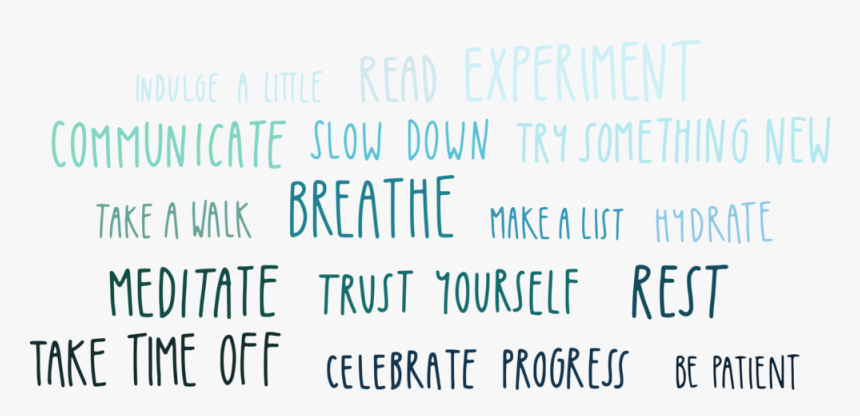 INDULGE A LITTLE READ EXPERIMENT
COMMUNICATE SLOW DOWN TRY SOMETHING NEW
TAKE A WALK BREATHE MAKE A LIST HYDRATE
MEDITATE TRUST YOURSELF REST
TAKE TIME OFF CELEBRATE PROGRESS BE PATIENT